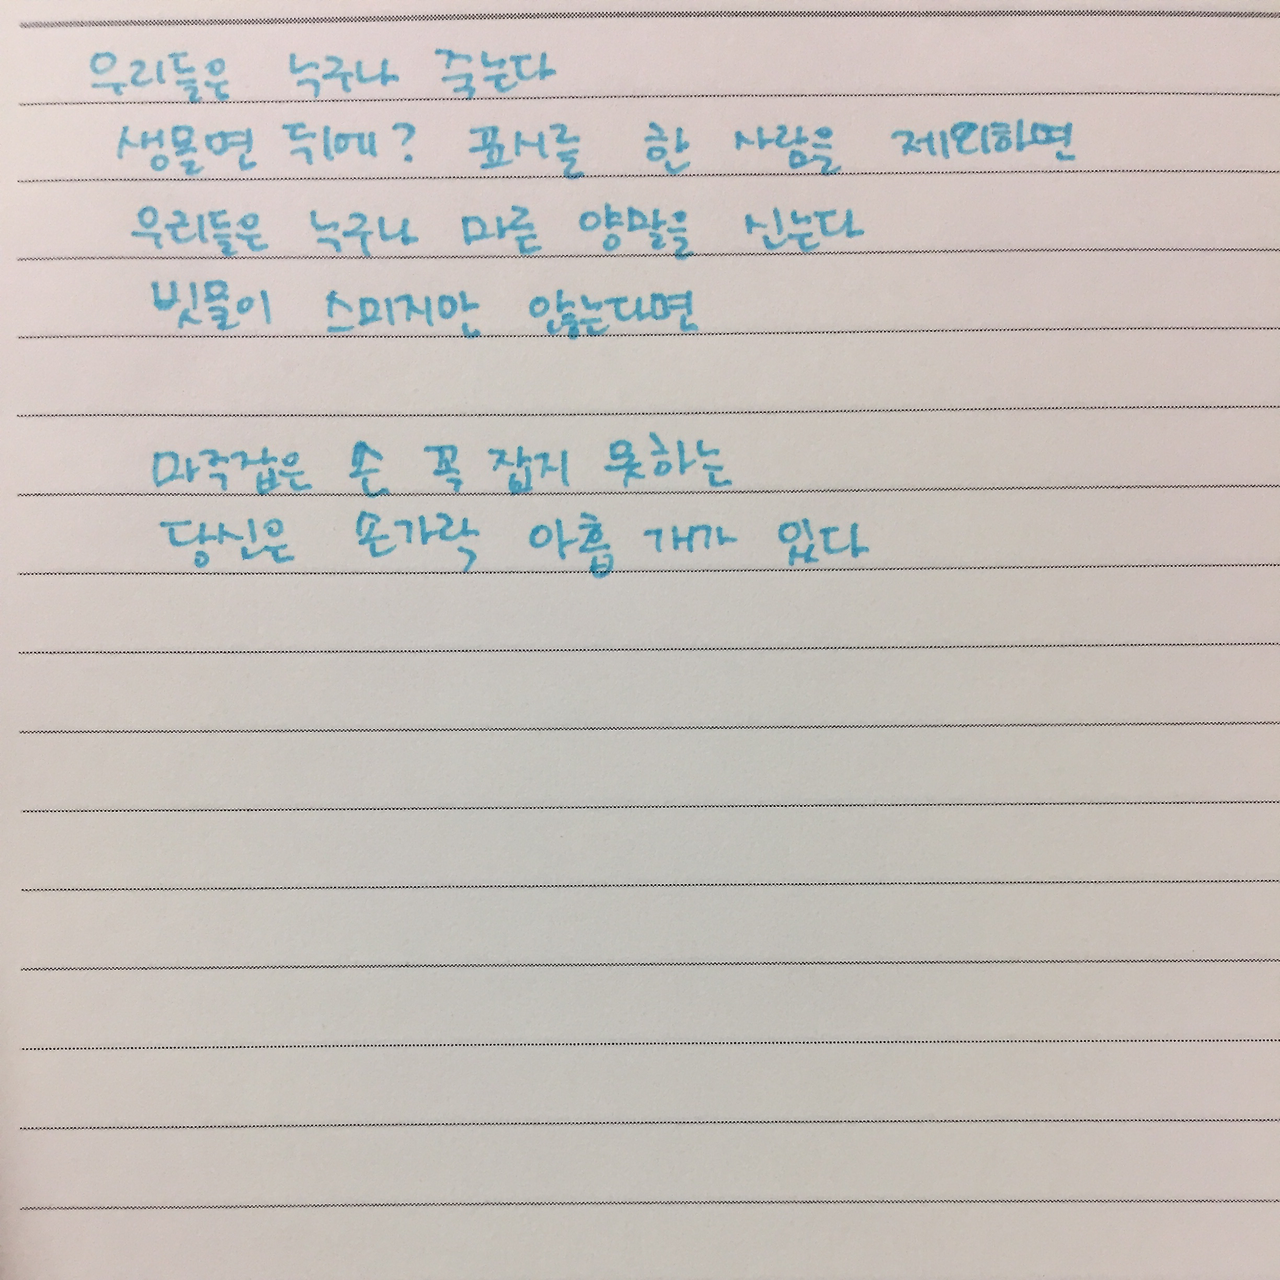 우리들은 누구나 죽는다
생몰면 뒤에? 표시를 한 사람을 제외하면
우리들은 누구나 마른 양말을 신는다
빗물이 스미지만 않는다면
마주잡은 손 꼭 잡지 못하는
당신은 손가락 아홉 개가 있다